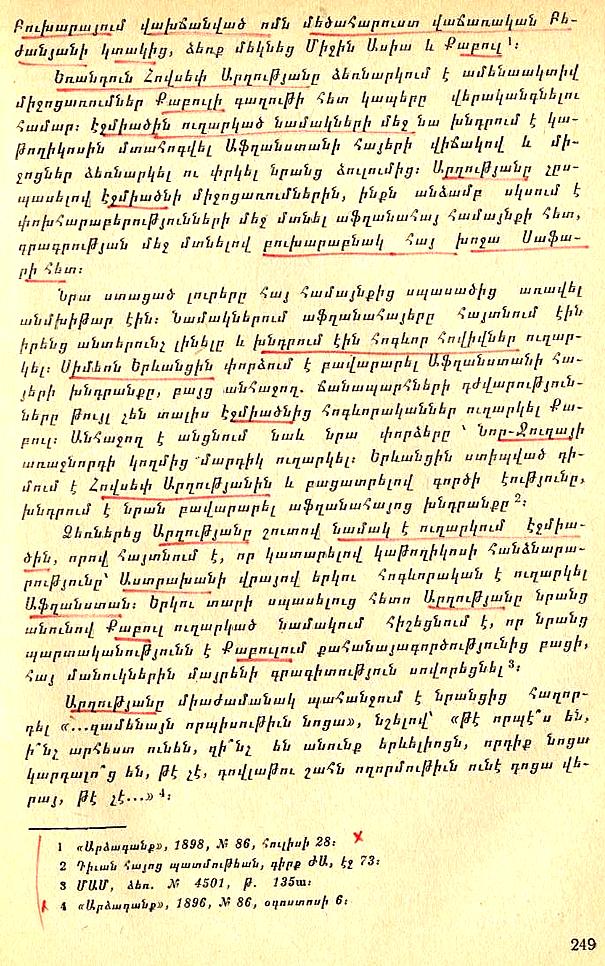 Բուխարայում վախճանված ոմն մեծահարուստ վաճառական Բե-
ժանյանի կտակից, ձեռք մեկնեց Միջին Ասիա և Քաբուլ 1։
Եռանդուն Հովսեփ Արղությանը ձեռնարկում է ամենաակտիվ
միջոցառումներ Քաբուլի գաղութի հետ կապերը վերականգնելու
համար։ Էջմիածին ուղարկած նամակների մեջ նա խնդրում է կա-
թողիկոսին մտահոգվել Աֆղանստանի հայերի վիճակով և մի-
ջոցներ ձեռնարկել ու փրկել նրանց ձուլումից։ Արղությանը չըս-
պասելով էջմիածնի միջոցառումներին, ինքն անձամբ սկսում է
փոխհարաբերությունների մեջ մտնել աֆղանահայ համայնքի հետ,
գրագրության մեջ մտնելով բուխարաբնակ հայ խոջա Սաֆա-
րի հետ։
Նրա ստացած լուրերը հայ համայնքից սպասածից առավել
անմխիթար էին։ Նամակներում աֆղանահայերը հայտնում էին
իրենց անտերունչ լինելը և խնդրում էին հոգևոր հովիվներ ուղար-
կել։ Սիմեոն Երևանցին փորձում է բավարարել Աֆղանստանի հա-
յերի խնդրանքը, բայց անհաջող. ճանապարհների դժվարություն-
ները թույլ չեն տալիս էջմիածնից հոգևորականներ ուղարկել Քա-
բուլ։ Անհաջող է անցնում նաև նրա փորձերը ՝ Նոր-Ջուղայի
առաջնորդի կողմից մարդիկ ուղարկել։ Երևանցին ստիպված դի-
մում է Հովսեփ Արղությանին և բացատրելով գործի էությունը,
խնդրում է նրան բավարարել աֆղանահայոց խնդրանքը 2։
Ձեռներեց Արղությանը շուտով նամակ է ուղարկում էջմիա-
ծին, որով հայտնում է, որ կատարելով կաթողիկոսի հանձնարա-
րությունը՝ Աստրախանի վրայով երկու հոգևորական է ուղարկել
Աֆղանստան։ Երկու տարի սպասելուց հետո Արղությանը նրանց
անունով Քաբուլ ուղարկած նամակում հիշեցնում է, որ նրանց
պարտականությունն է Քաբուլում քահանայագործությունից բացի,
հայ մանուկներին մայրենի գրագիտություն սովորեցնել 3։
Արղությանը միաժամանակ պահանջում է նրանցից հաղոր-
դել «...զամենայն որպիսութիւն նոցա», նշելով՝ «թէ որպէ՞ս են,
ի՞նչ արհեստ ունեն, զի՞նչ են անունք երևելիոցն, որդիք նոցա
կարդալո՞ց են, թէ չէ, դովլաթու շահն ողորմութիւն ունէ դոցա վե-
րայ, թէ չէ...» 4։
1 «Արձագանք», 1898, № 86, հուլիսի 28։
2 Դիւան հայոց պատմութեան, գիրք ԺԱ, էջ 73։
3 ՄԱՄ, ձեռ. № 4501, թ. 135ա։
4 «Արձագանք», 1896, № 86, օգոստոսի 6։
249